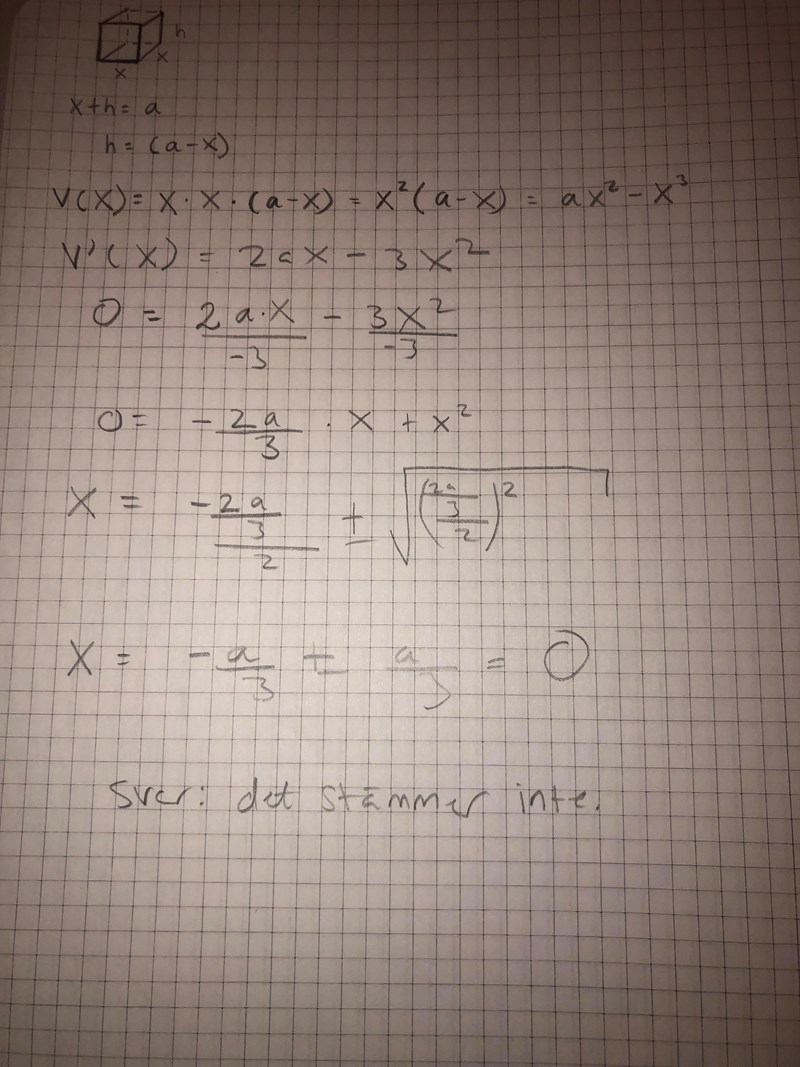 h
x
x
x+h= a
h = (a-x)
V(X)= X · X · (a-x) = x²(a-x) = ax² - x³
V'(X) = 2ax - 3x²
0 = 2a·x/-3 - 3x²/-3
0= -2a/3 · x + x²
X = -2a/3/2 ± √(2a/3/2)²
X = -a/3 ± a/3 = 0
Svar: det stämmer inte.